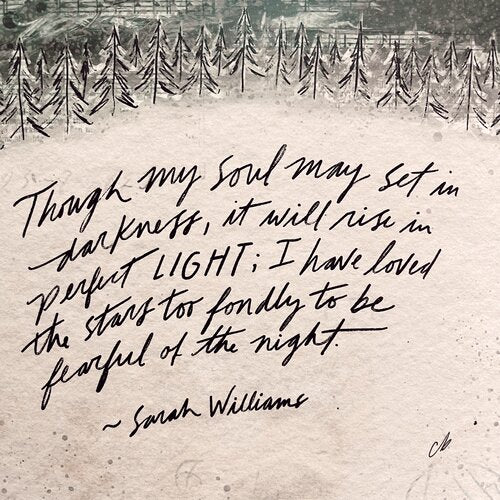 Though my soul may set in
darkness, it will rise in
perfect LIGHT; I have loved
the stars too fondly to be
fearful of the night.
~ Sarah Williams
cb.